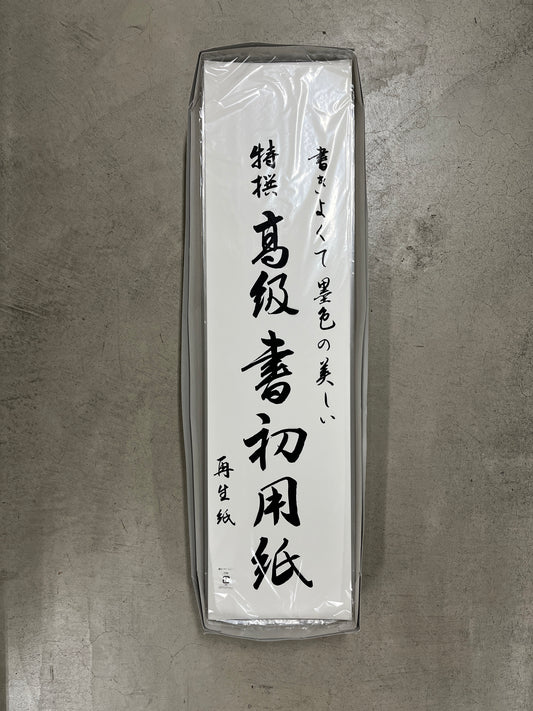 書きよくて墨色の美しい
特撰 高級書初用紙
再生紙